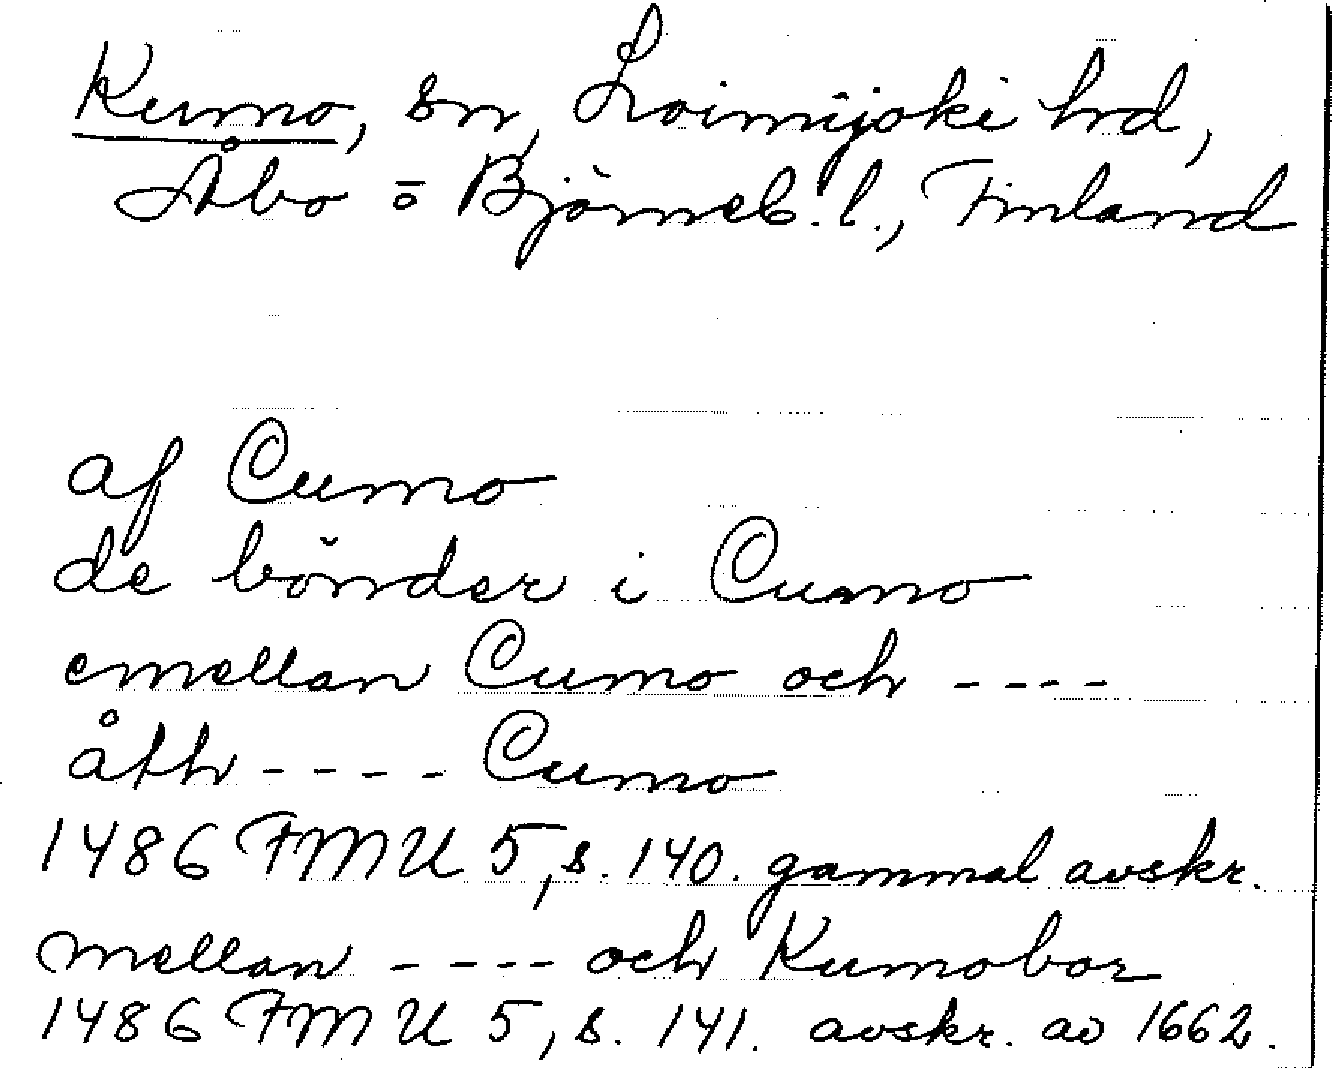 Kumo, sn, Loimijoki hrd,
Åbo = Björneb. l., Finland
af Cumo
de bönder i Cumo
emellan Cumo och ----
åth ---- Cumo
1486 FMU 5, s. 140. gammal avskr.
mellan ---- och Kumobor
1486 FMU 5, s. 141. avskr. av 1662.